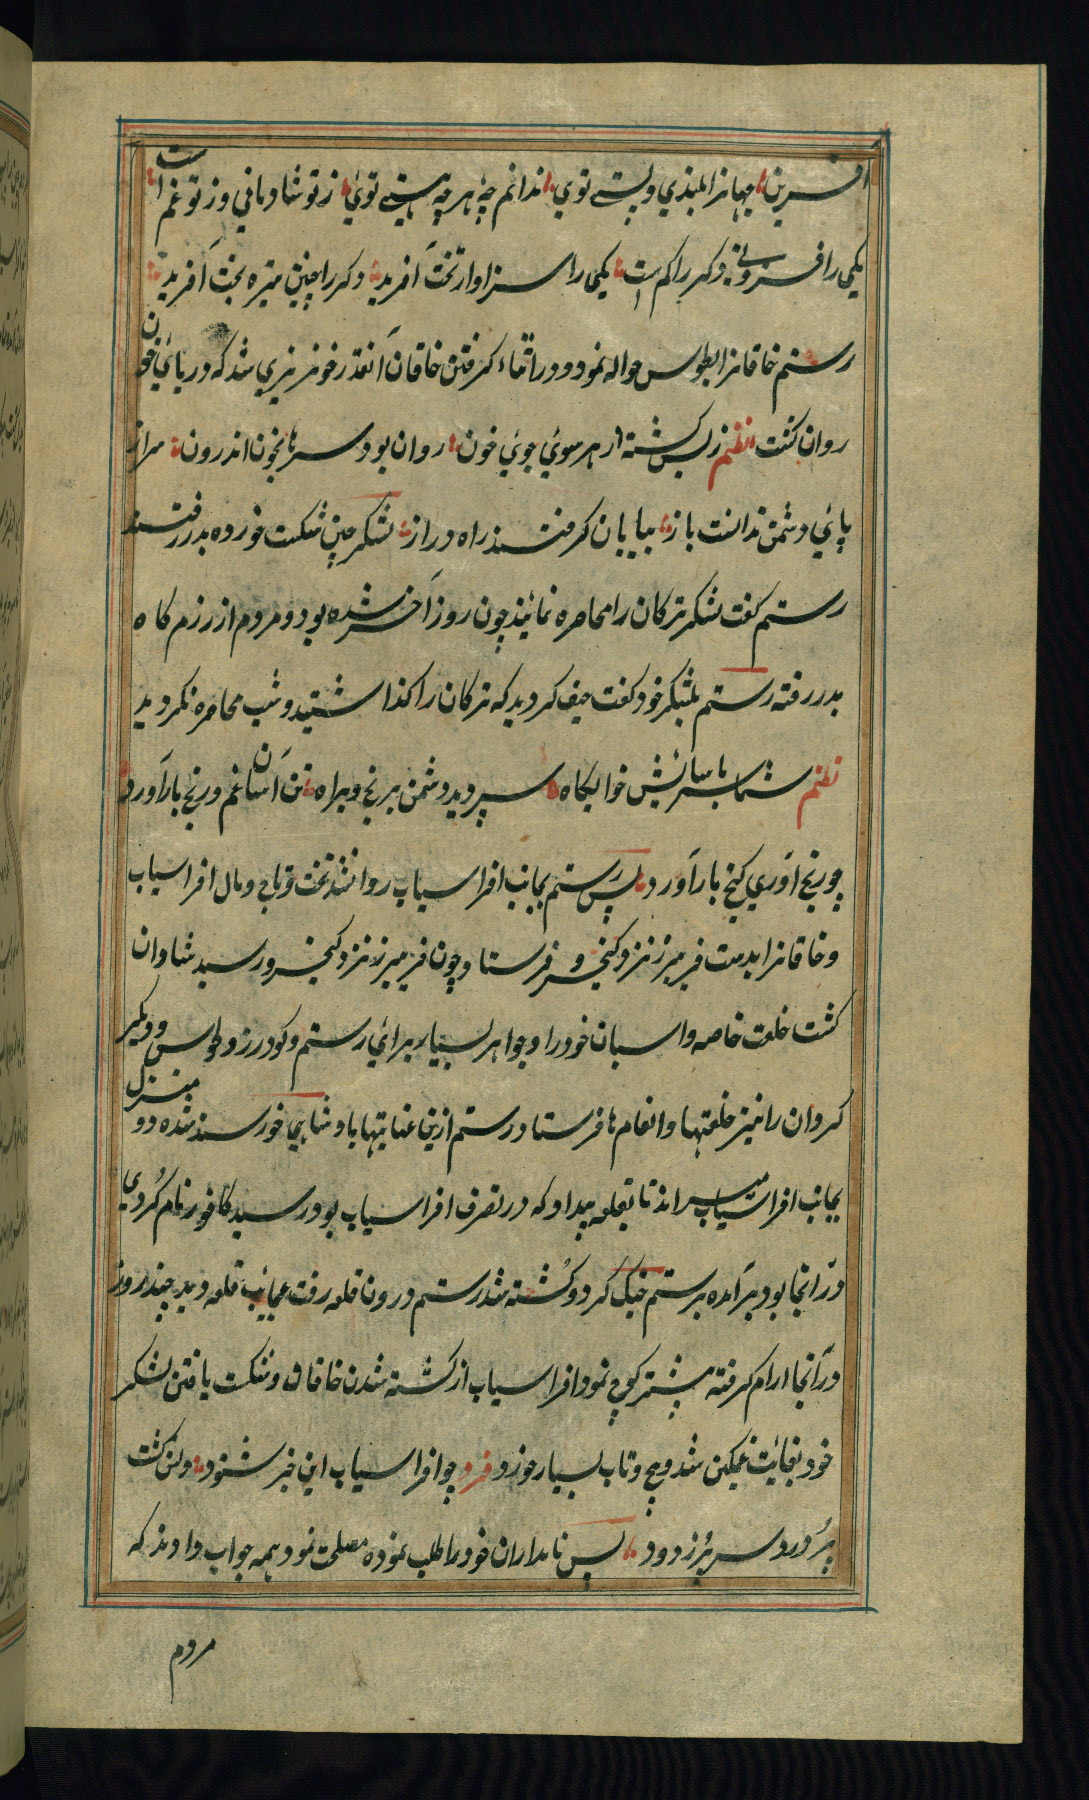 افسرین جهانرا بلندی و پستی توی ندانم چهٔ هر چه هستی توی ز تو شادمانی و ز تو غم است
یکی را فزونی دکر را کم است یکی را سزاوار تخت آفرید دکر را چنین تیره بخت آفرید
رستم خاقانرا بطوس حواله نمود و در اثناء کرفتن خاقان آنقدر خونریزی شد که دریای خون
روان کشت نظم ز بس کشته از هر سوی جوی خون روان بود سرها بخون اندرون سر از
پای دشمن ندانست باز بیابان کرفتند راه دراز لشکر چین شکست خورده بدر رفتند
رستم کفت لشکر ترکان را محاصره نمائیند چون روز آخر شده بود و مردم از رزم کاه
بدر رفته رستم بلشکر خود کفت حیف کردید که ترکان را کذاشتید و شب محاصره نکردید
نظم شما سر باسایش خوابکاه سپردید و دشمن برنج و براه تن آسان غم و رنج بار آورد
چو رنج آوری کنج بار آورد پس رستم بجانب افراسیاب روانشد تخت و تاج و مال افراسیاب
و خاقانرا بدست فریبرز نزد کیخسرو فرستاد چون فریبرز نزد کیخسرو رسید شادان
کشت خلعت خاصه و اسبان خود را و جواهر بسیار برای رستم و کودرز و طوس و دیکر
کردان را نیز خلعتها و انعام ها فرستاد رستم ازین عنایتها پادشاهی خورسند شده دو منزل
بجانب افراسیاب میراند تا بقلعه بیداد که در تصرف افراسیاب بود رسید کافور نام کُردی
در آنجا بود بر آمده برستم جنک کرد و کُشته شد رستم درون قلعه رفت عجایب قلعه دید چند روز
در آنجا ارام کرفته پیشتر کوچ نمود افراسیاب از کشته شدن خاقان و شکست یافتن لشکر
خود بغایت غمکین شد و پیچ و تاب بسیار خورد فرد چو افراسیاب این خبر شنود دلش کشت
پُر درد و سر پُر ز دود پس نامداران خود را طلب نموده مصلحت نمود همه جواب دادند که
مردم